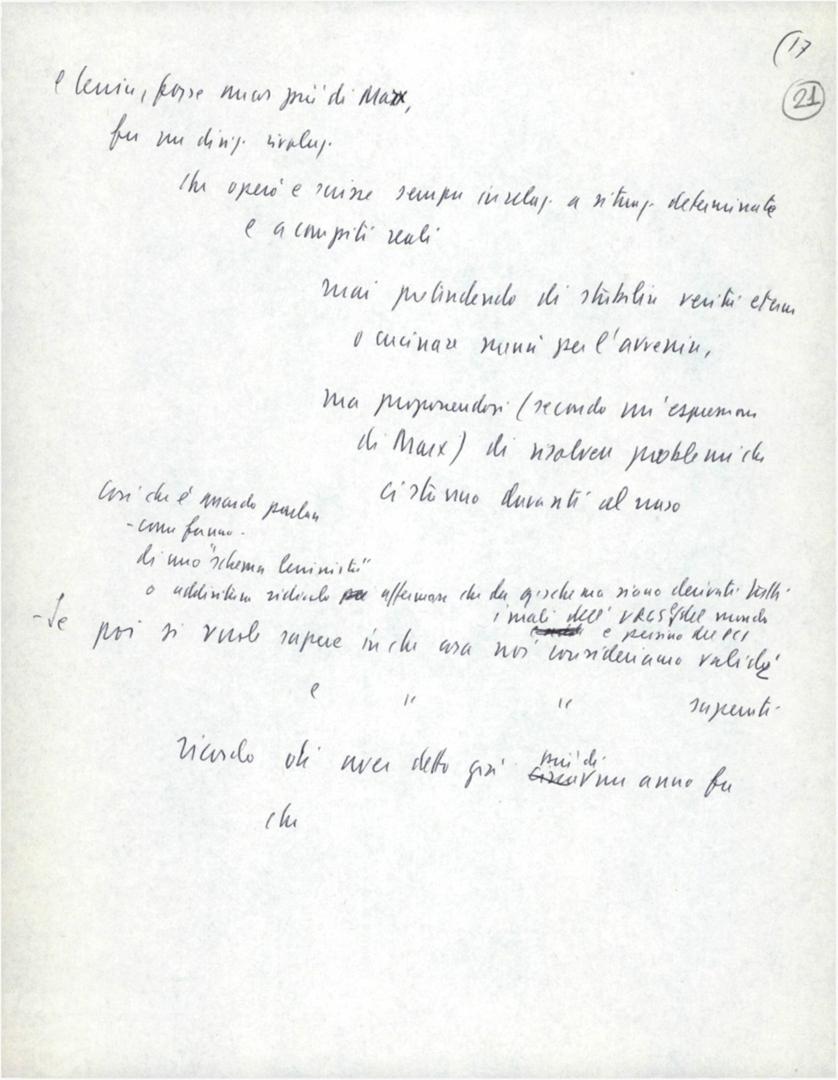 (17
21
e Lenin, forse ancor più di Marx,
fu un dirig. rivoluz.
che operò e scrisse sempre in relaz. a situaz. determinate
e a compiti reali
mai pretendendo di stabilire verità eterne
o cucinare menù per l'avvenire,
ma proponendosi (secondo un'espressione
di Marx) di risolvere problemi che
ci stanno davanti al naso
Così che è quando parlan
- come fanno -
di uno "schema leninista"
o addirittura ridicolo affermare che da q. schema siano derivati tutti
i mali dell'URSS, del mondo
e persino del PCI
- Se poi si vuole sapere in che cosa noi consideriamo valide
e " " superate
ricordo di aver detto già più di un anno fa
che